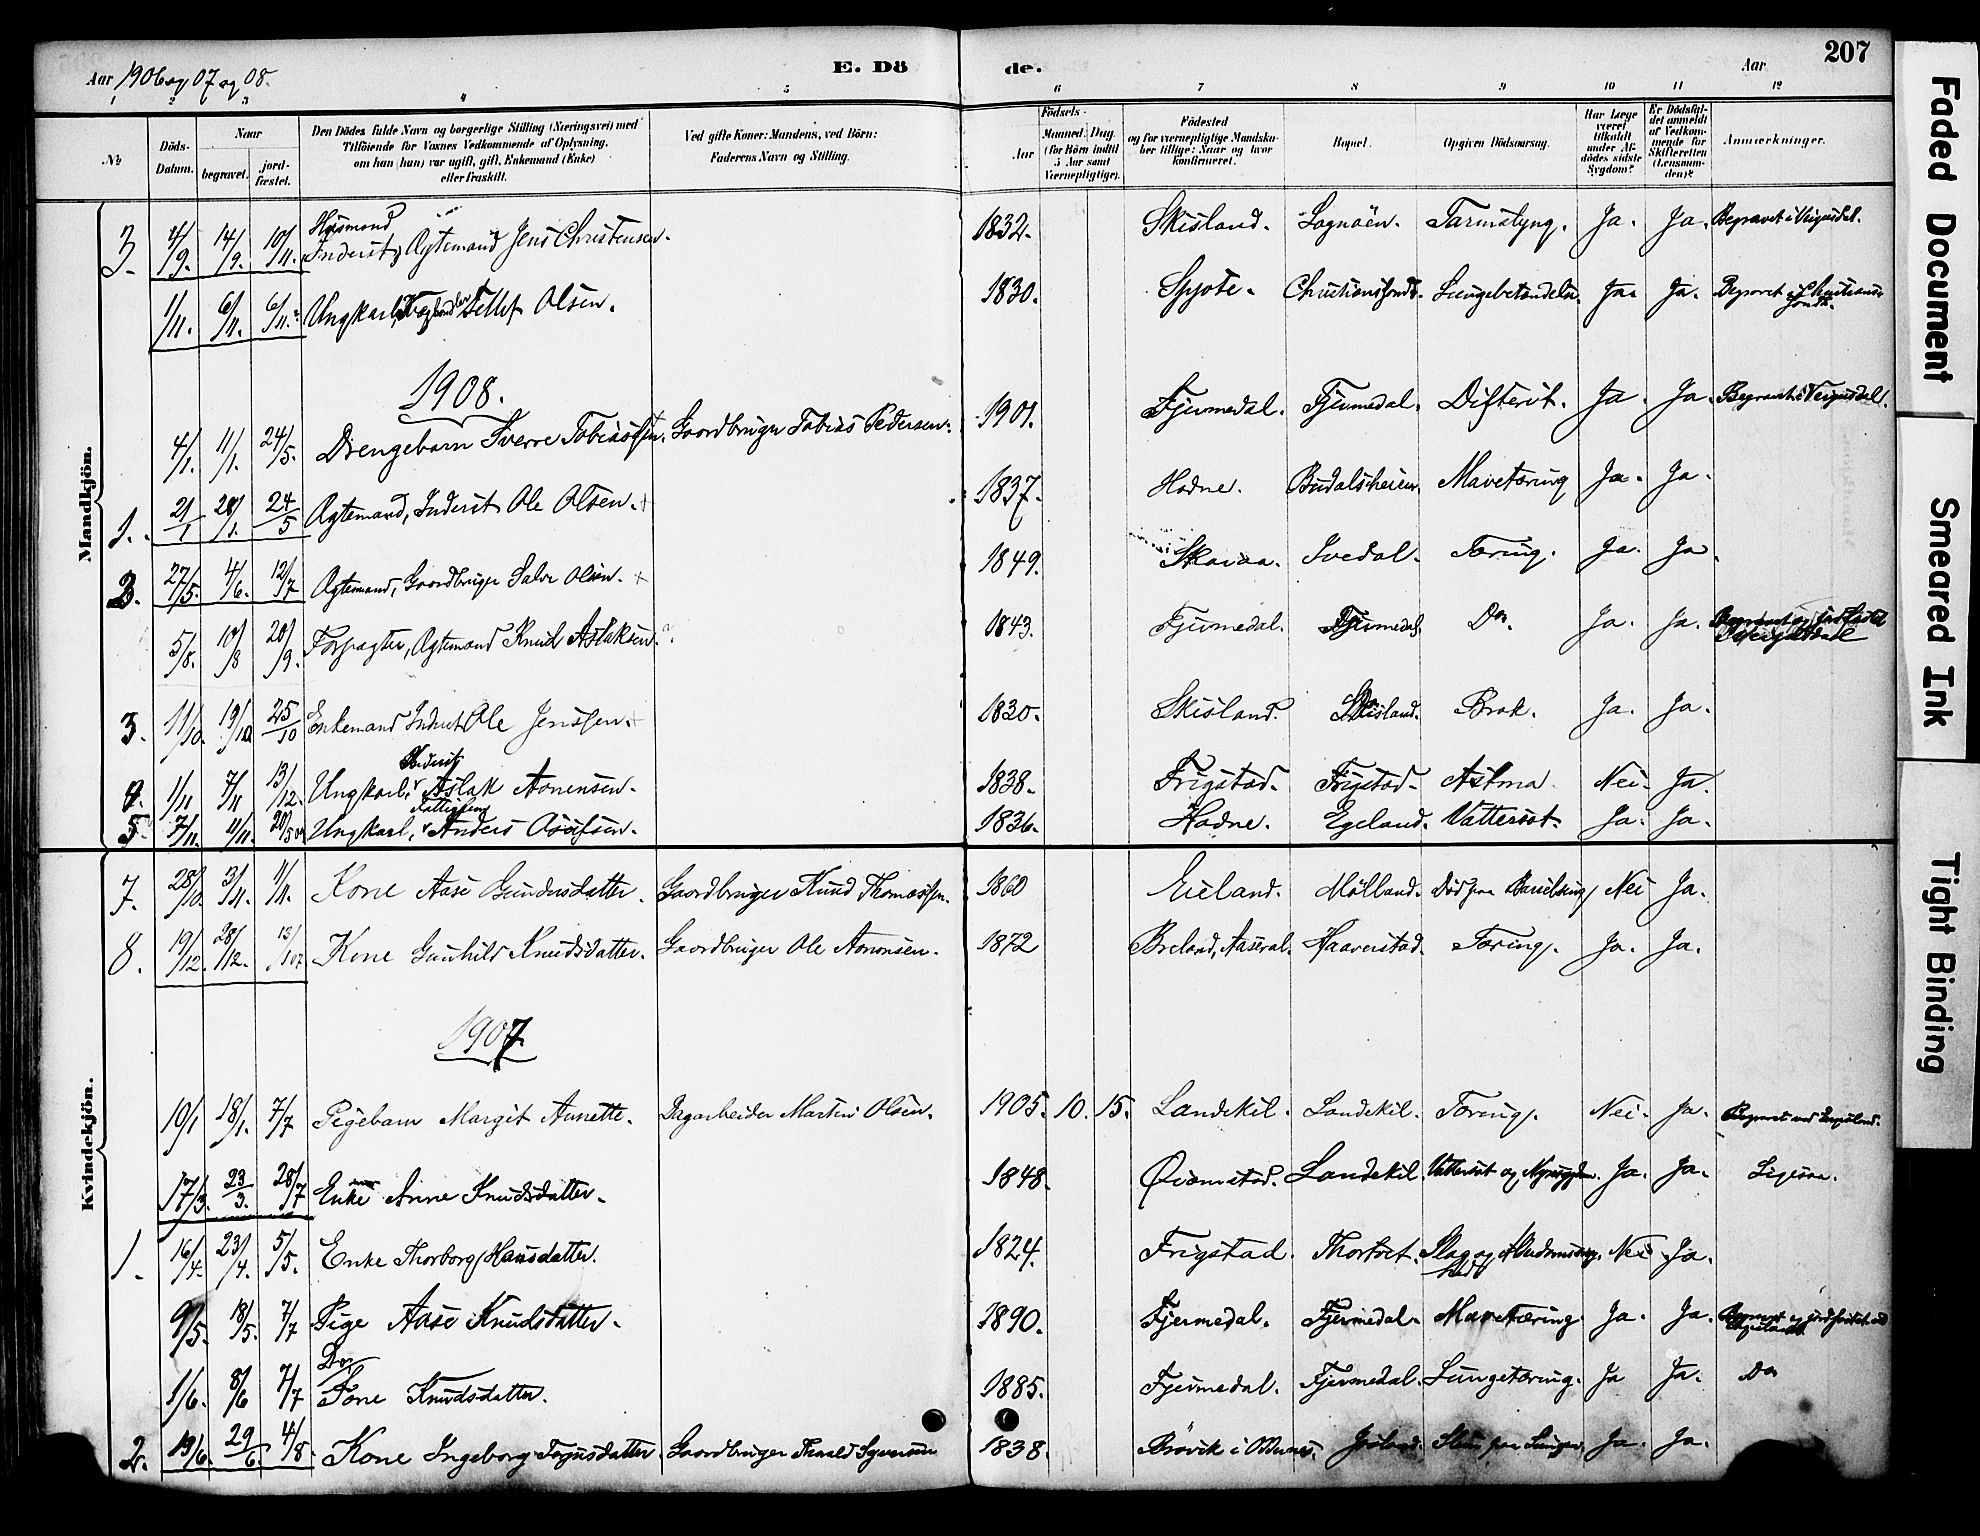 Aar 1906 og 07 og 08. E. Dö de. Aar 207
1 2 3 4 5 6 7 8 9 10 11 12
No
Döds-Datum.
Naar
begravet.
jord-fæstet.
Den Dödes fulde Navn og borgerlige Stilling (Næringsvei) med
Tilföiende for Voxnes Vedkommende af Oplysning,
om han (hun) var ugift, gift, Enkemand (Enke)
eller fraskilt.
Ved gifte Koner: Mandens, ved Börn:
Faderens Navn og Stilling.
Födsels-
Aar
Maaned. Dag.
(for Börn indtil
5 Aar samt
Værnepligtige).
Födested
og for værnepligtige Mandska-
ber tillige: Naar og hvor
konfirmeret.
Bopæl.
Opgiven Dödsaarsag.
Har Læge
været
tilkaldt
under Af-
dödes sidste
Sygdom?
Er Dödsfal-
det anmeldt
af Vedkom-
mende for
Skifteretten
(Lensman-
den)?
Anmærkninger.
Mandkjön.
3. 4/9. 14/9. 10/11. Husmand Inderst, Ægtemand Jens Christensen. 1832. Skisland. Lognåen. Tarmslyng. Ja. Ja. Begravet i Veigusdal.
1/11. 6/11. 6/11. Ungkarl, Tellef Olsen. 1830. Spjote. Christianssand. Lungebetændelse. Ja. Ja. Begravet i Christianssand.
1908.
4/1. 11/1. 24/5. Drengebarn Sverre Tobiassen. Gaardbruger Tobias Pedersen. 1901. Fjermedal. Fjermedal. Difterit. Ja. Ja. Begravet i Veigusdal.
1. 21/1 28/1. 24/5 Ægtemand, Inderst Ole Olsen. + 1837. Hodne. Budalsheien. Mavetæring Ja. Ja.
2. 27/5. 4/6. 12/7 Ægtemand, Gaardbruger Salve Olsen. + 1849. Skaiaa. Ivedal. Tæring. Ja. Ja.
5/8. 10/8 20/9. Forpagter, Ægtemand Knud Aslaksen. 1843. Fjermedal. Fjermedal. Do. Ja. Ja.
3. 11/10. 19/10 25/10 Enkemand Inderst Ole Jenssen. + 1830. Skisland. Skisland. Brok. Ja. Ja.
4. 1/11 7/11 13/12. Ungkarl, Inderst Aslak Aanensen. 1838. Frigstad. Frigstad. Astma. Nei. Ja.
5. 7/11. 11/11. 20/5 09 Ungkarl, Fattiglem Anders Osufsen. 1836. Hodne. Egeland. Vattersot. Ja. Ja.
Kvindekjön.
7. 28/10. 3/11. 1/11. Kone Aase Gundersdatter. Gaardbruger Knud Thomassen. 1860 Eieland. Mölland. Död paa Barselseng Nei Ja.
8. 19/12. 28/12. 13/1 07 Kone Gunhild Knudsdatter. Gaardbruger Ole Aanonsen. 1872 Breland, Aaseral. Haaverstad. Tæring. Ja. Ja.
1907.
10/1 18/1. 7/7 Pigebarn Margit Annette. Dagarbeider Martin Olsen. 1905. 10. 15. Landekil. Landekil. Tæring. Nei. Ja. Begravet ved
17/3. 23/3. 28/7 Enke Anne Knudsdatter. 1848. Qvernstad. Landekil. Vattersot og Nyresygdom. Ja. Ja. Ligesaa.
1. 16/4. 23/4. 5/5. Enke Thorborg Hansdatter. 1824. Frigstad. Thortvet. Slag og Alderdomssvaghed Nei Ja.
9/5. 18/5. 7/7 Pige Aase Knudsdatter. 1890. Fjermedal. Fjermedal. Mavetæring Ja. Ja. Begravet og jordfæstet ved
1/6. 8/6 7/7 Do. Tone Knudsdatter. 1885. Fjermedal. Fjermedal. Lungetæring. Ja Ja. Do
2. 19/6. 29/6. 4/8. Kone Ingeborg Torjusdatter. Gaardbruger Syversen 1838. Brövik i Ja. Ja.
Faded Document
Smeared Ink
Tight Binding